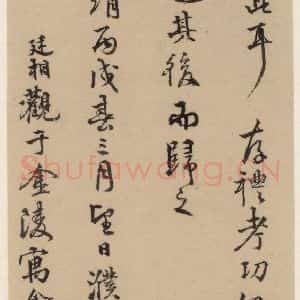 此耳存禮考功
其後而歸之
靖丙戌春三月望日濮
廷相觀于金陵寓
Shufawang.CN